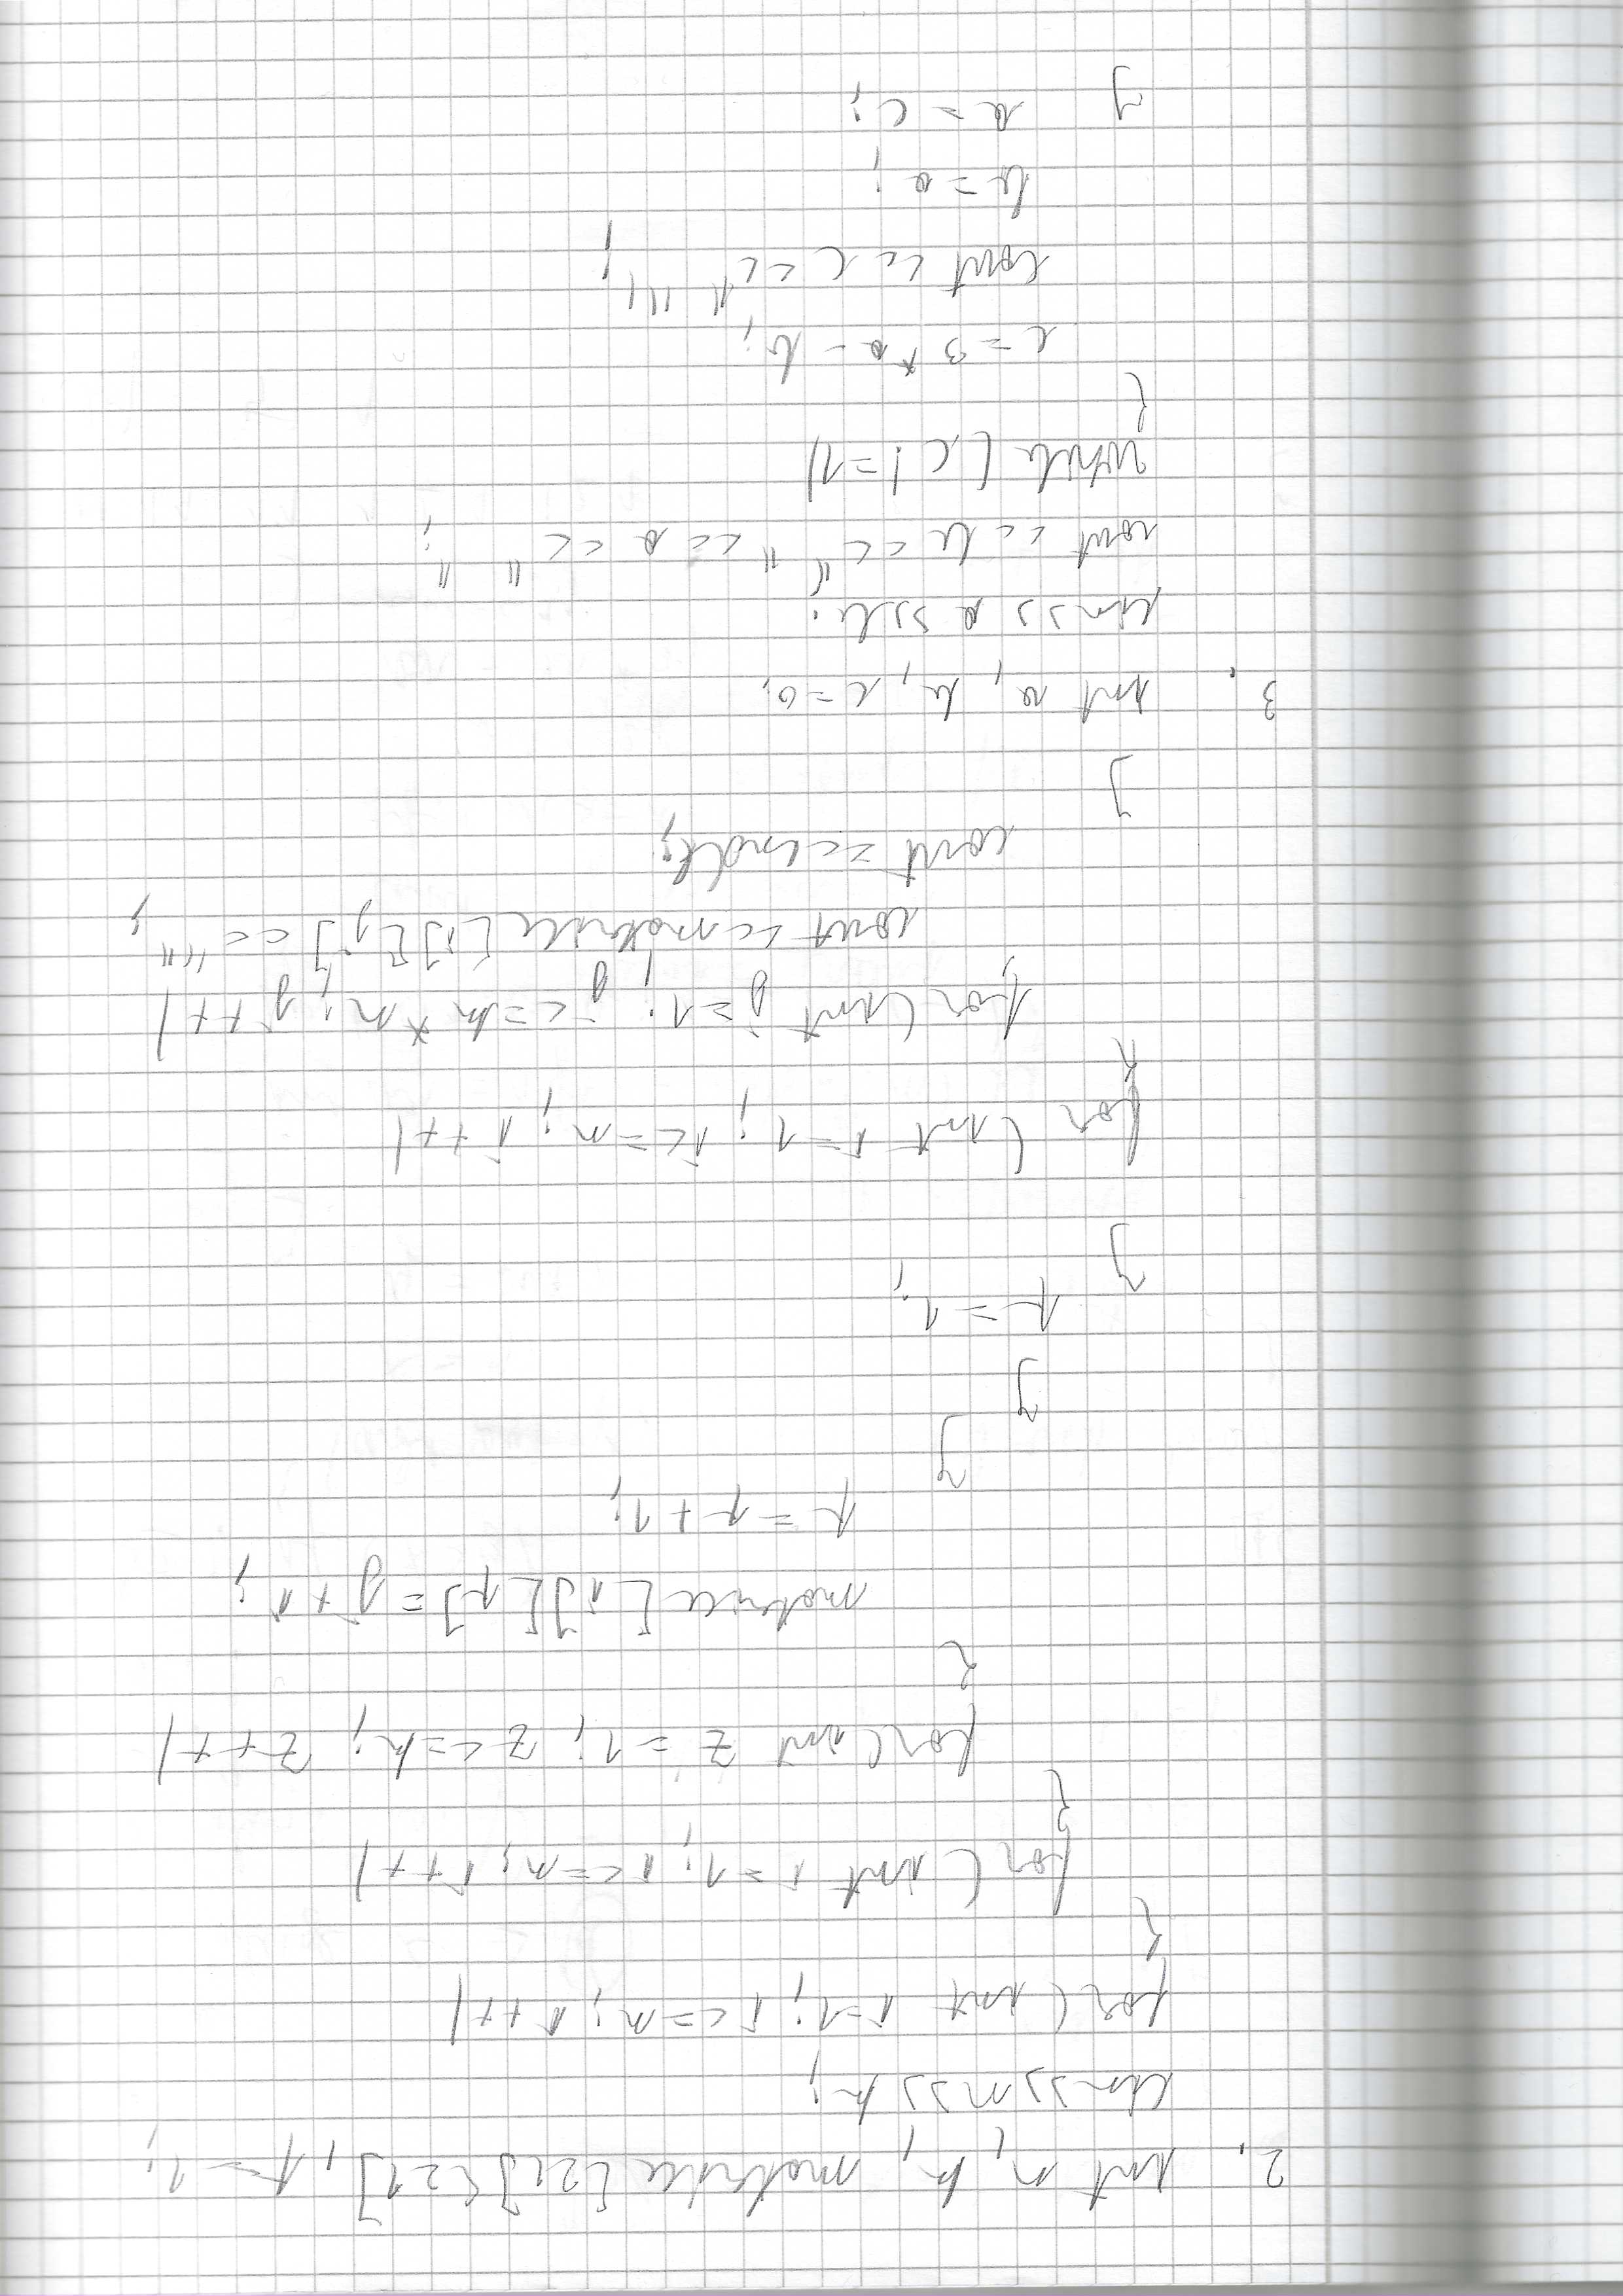 2. int n, k, matrice [21][21], t=1;
cin>>n>>k;
for (int i=1; i<=n; i++)
{
for (int j=1; j<=n; j++)
{
for (int z=1; z<=k; z++)
{
matrice [i][t]=j+i;
t=t+1;
}
}
t=1;
}
for (int i=1; i<=n; i++)
{
for (int j=1; j<=n*k; j++)
cout <<matrice [i][j] <<" ";
cout <<endl;
}
3. int a, b, c=0;
cin>> a >>b;
cout <<b <<" " << a << " ";
while (c != 1)
{
c = 3*a - b;
cout << c << " ";
b = a;
a = c;
}